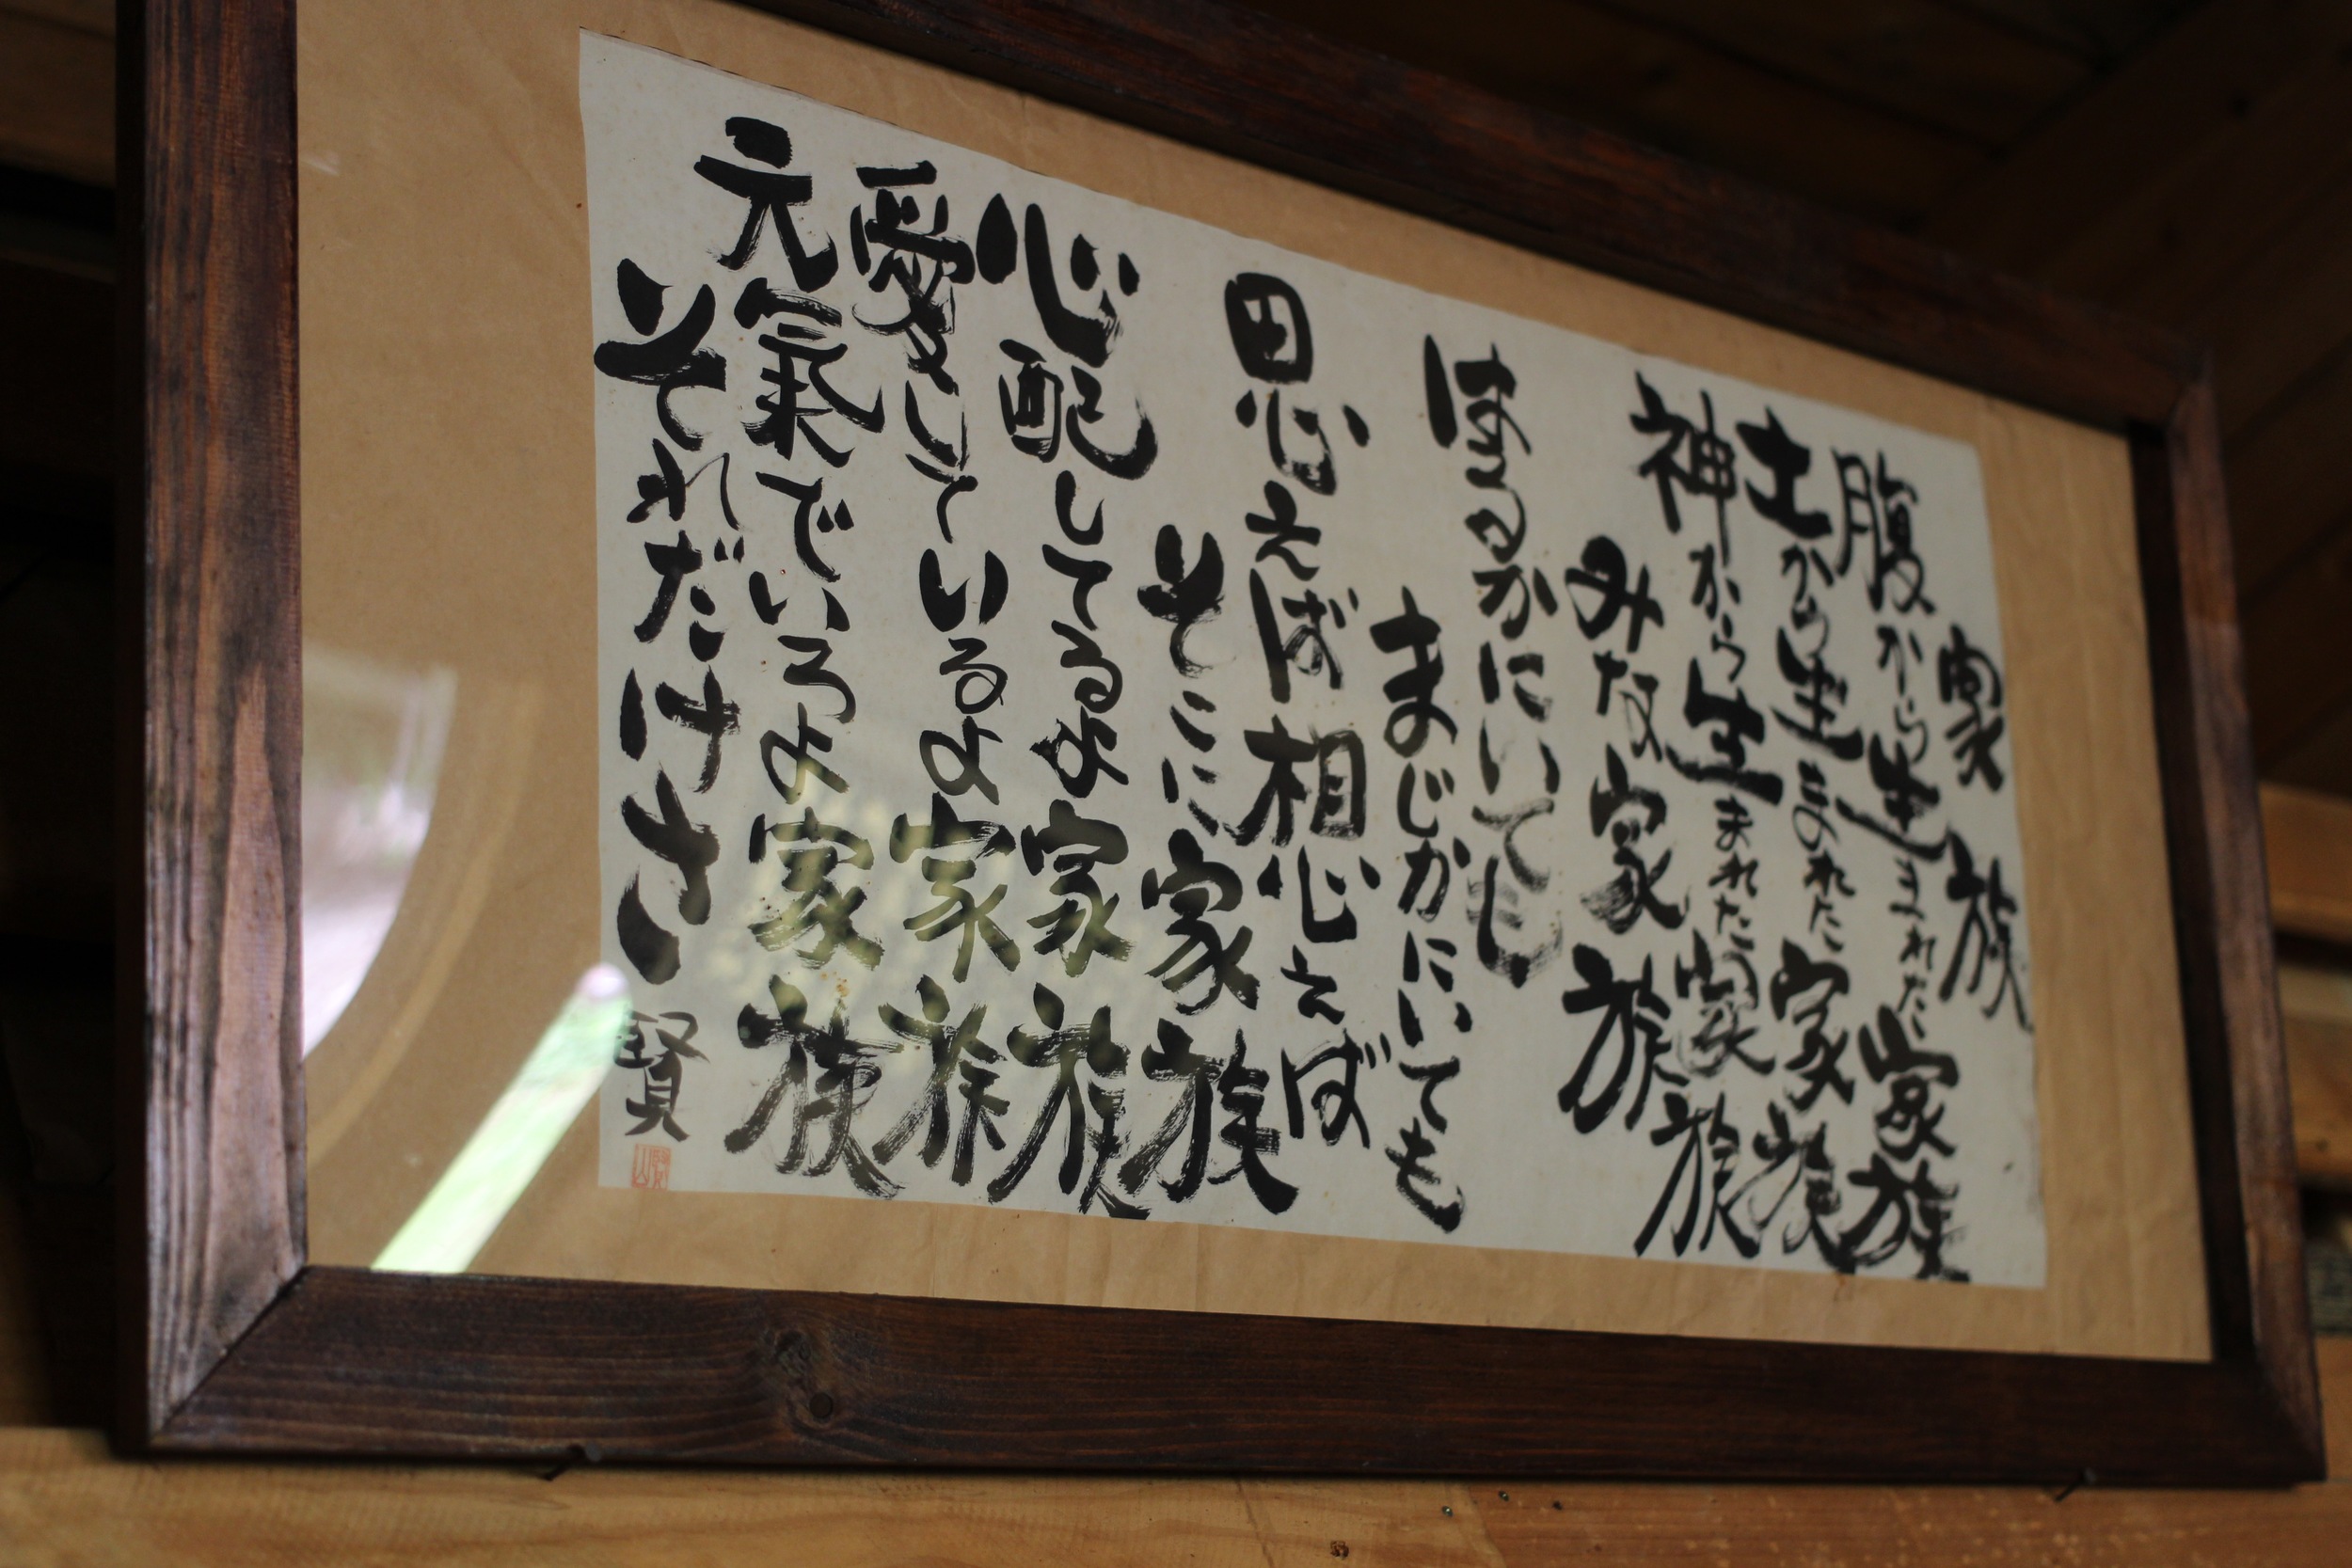 家族
腹から生まれた家族
土から生まれた家族
神から生まれた家族
みな家族
はるかにいても
まじかにいても
思えば想えば
そこに家族
心配してるよ家族
愛しているよ家族
元氣でいろよ家族
それだけさ
賢